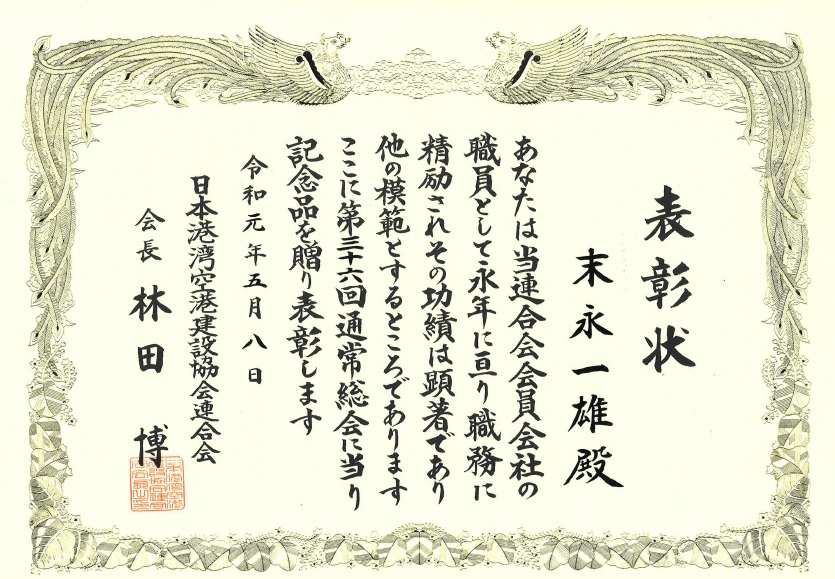 表彰状
末永一雄殿
あなたは当連合会会員会社の
職員として永年に亘り職務に
精励されその功績は顕著であり
他の模範とするところであります
ここに第三十六回通常総会に当り
記念品を贈り表彰します
令和元年五月八日
日本港湾空港建設協会連合会
会長 林田 博